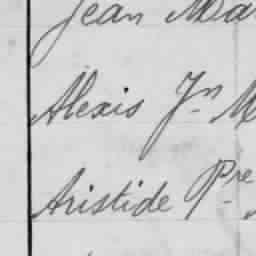 Jean Ma
Alexis Jn M
Aristide Pre